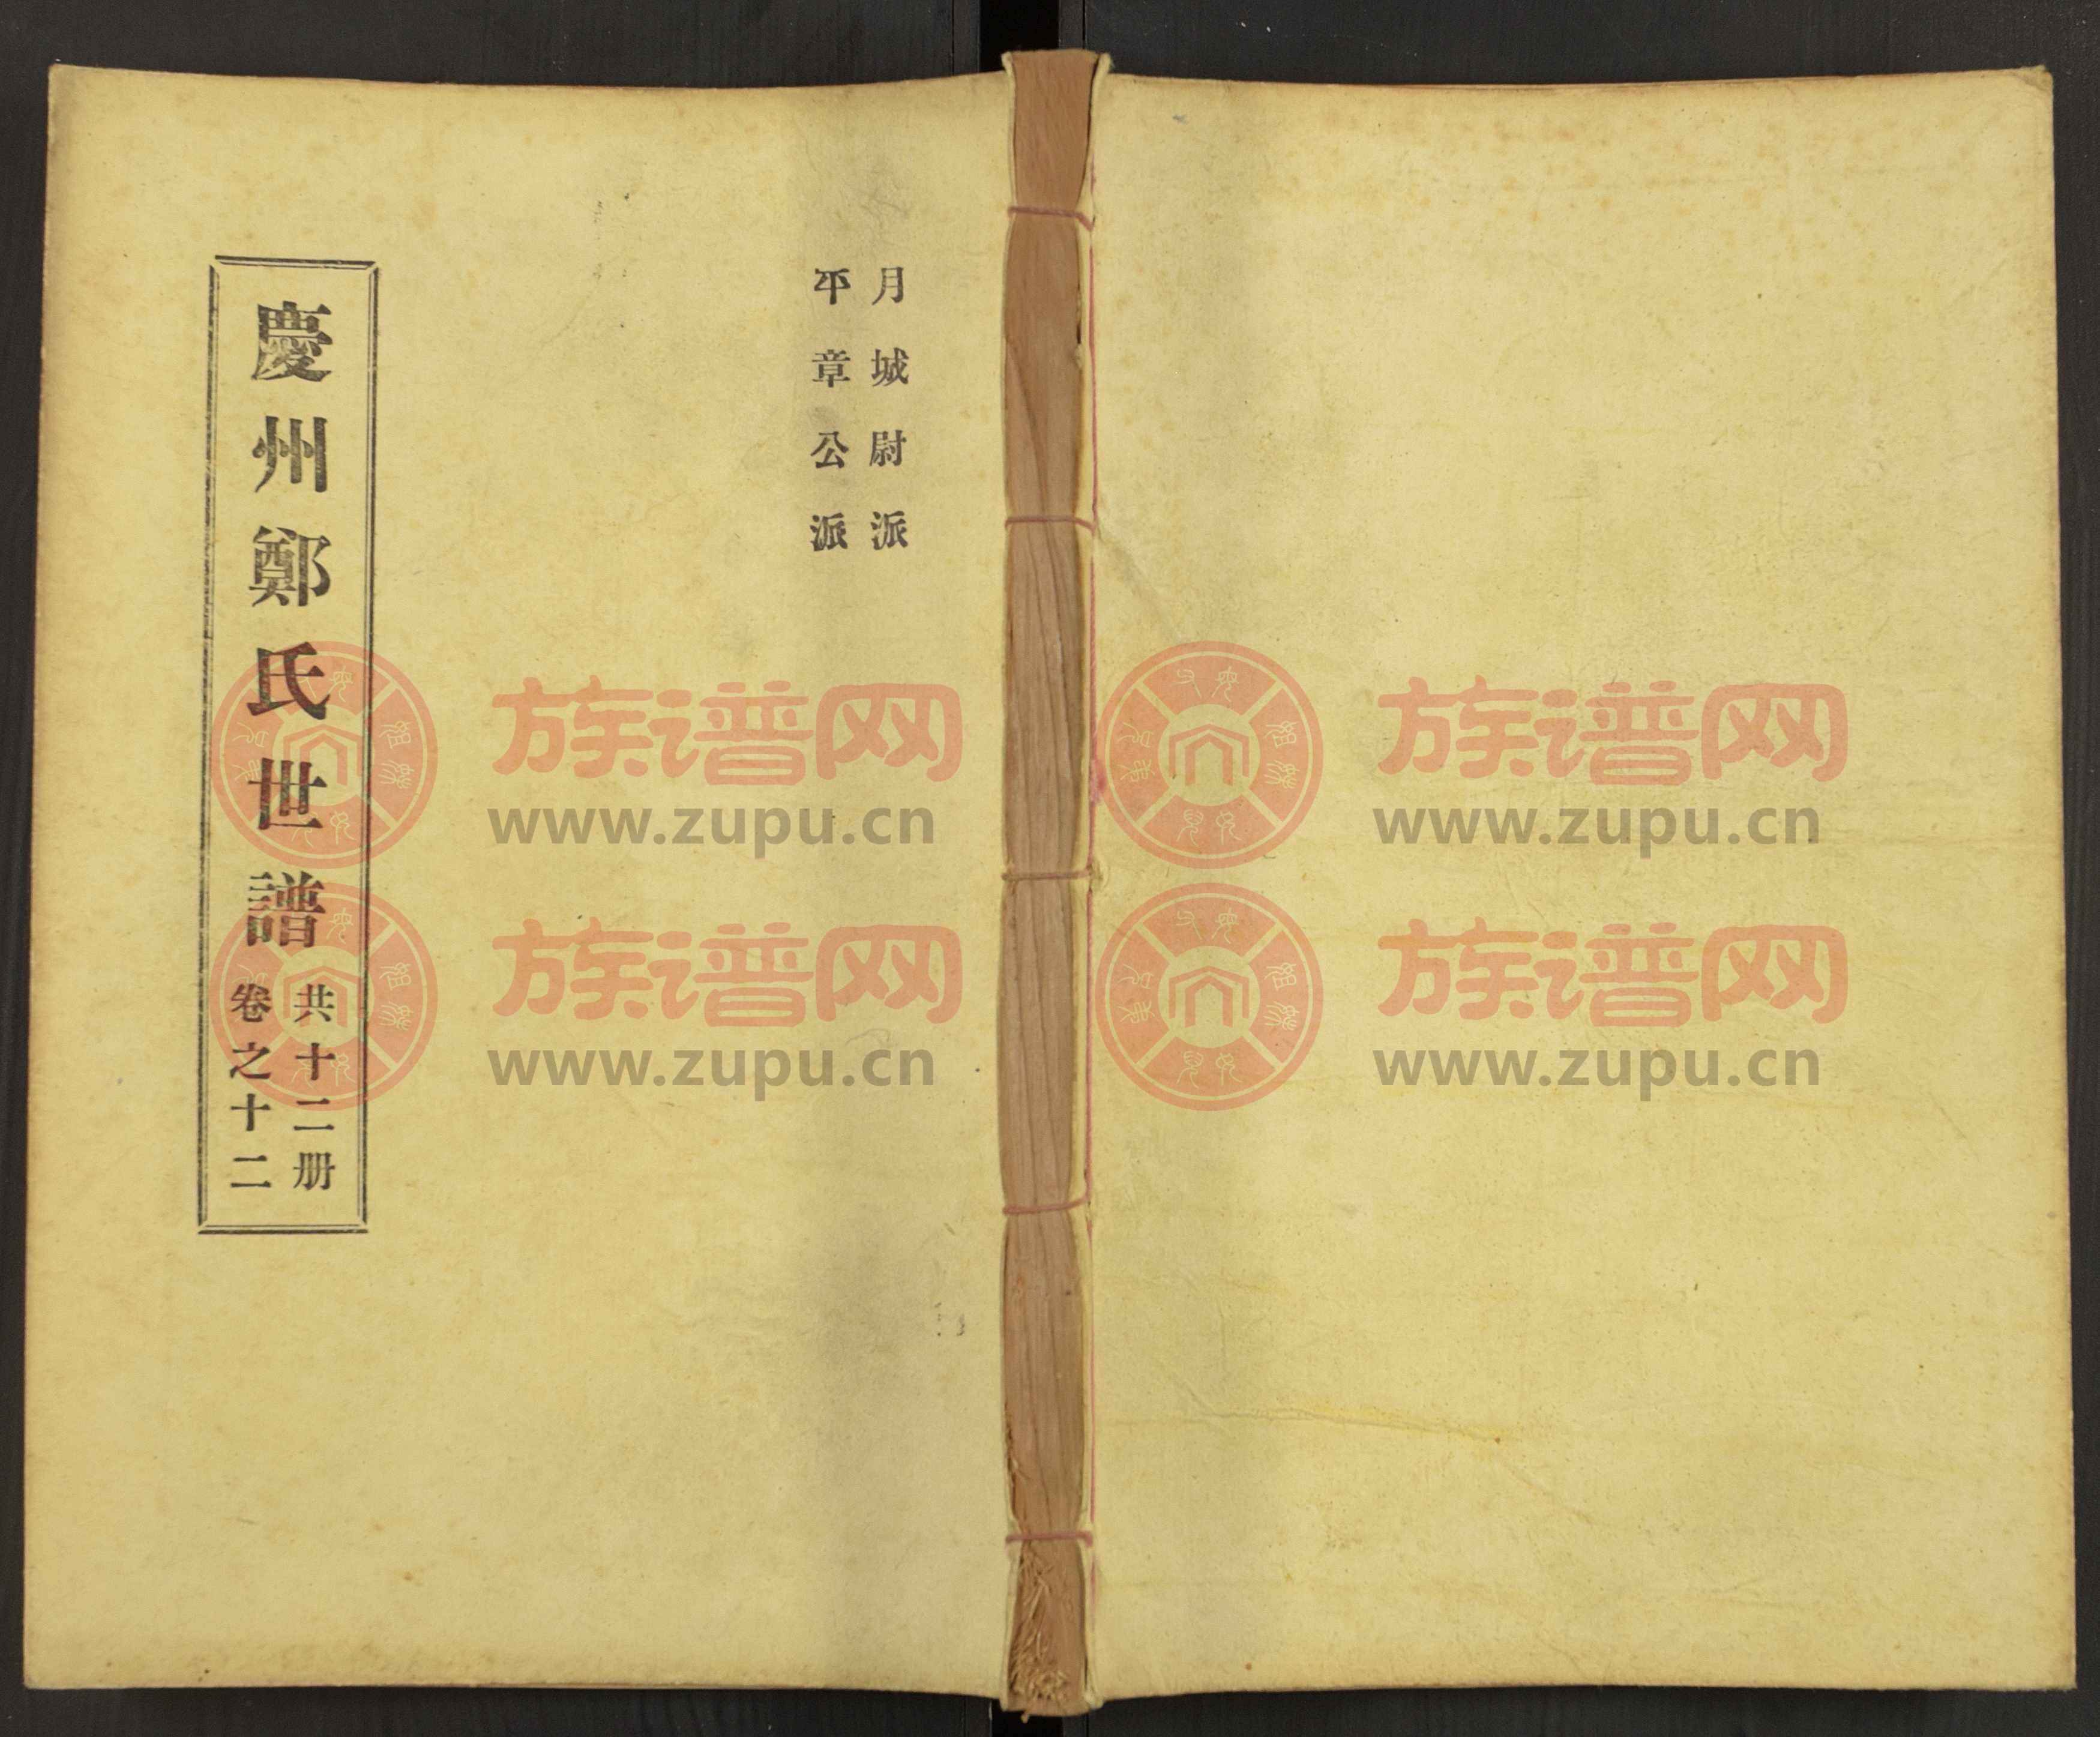 月城尉派
平章公派
慶州鄭氏世譜
共十二册
卷之十二
族谱网
www.zupu.cn
族谱网
www.zupu.cn
族谱网
www.zupu.cn
族谱网
www.zupu.cn